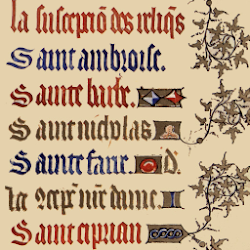 la suscepciõ des reliq̃s
Saint ambroise.
Sainte barbe.
Saint nicholas
Sainte fare. D.
la 2cepc̃ nr̃e dame.
Saint ciprian